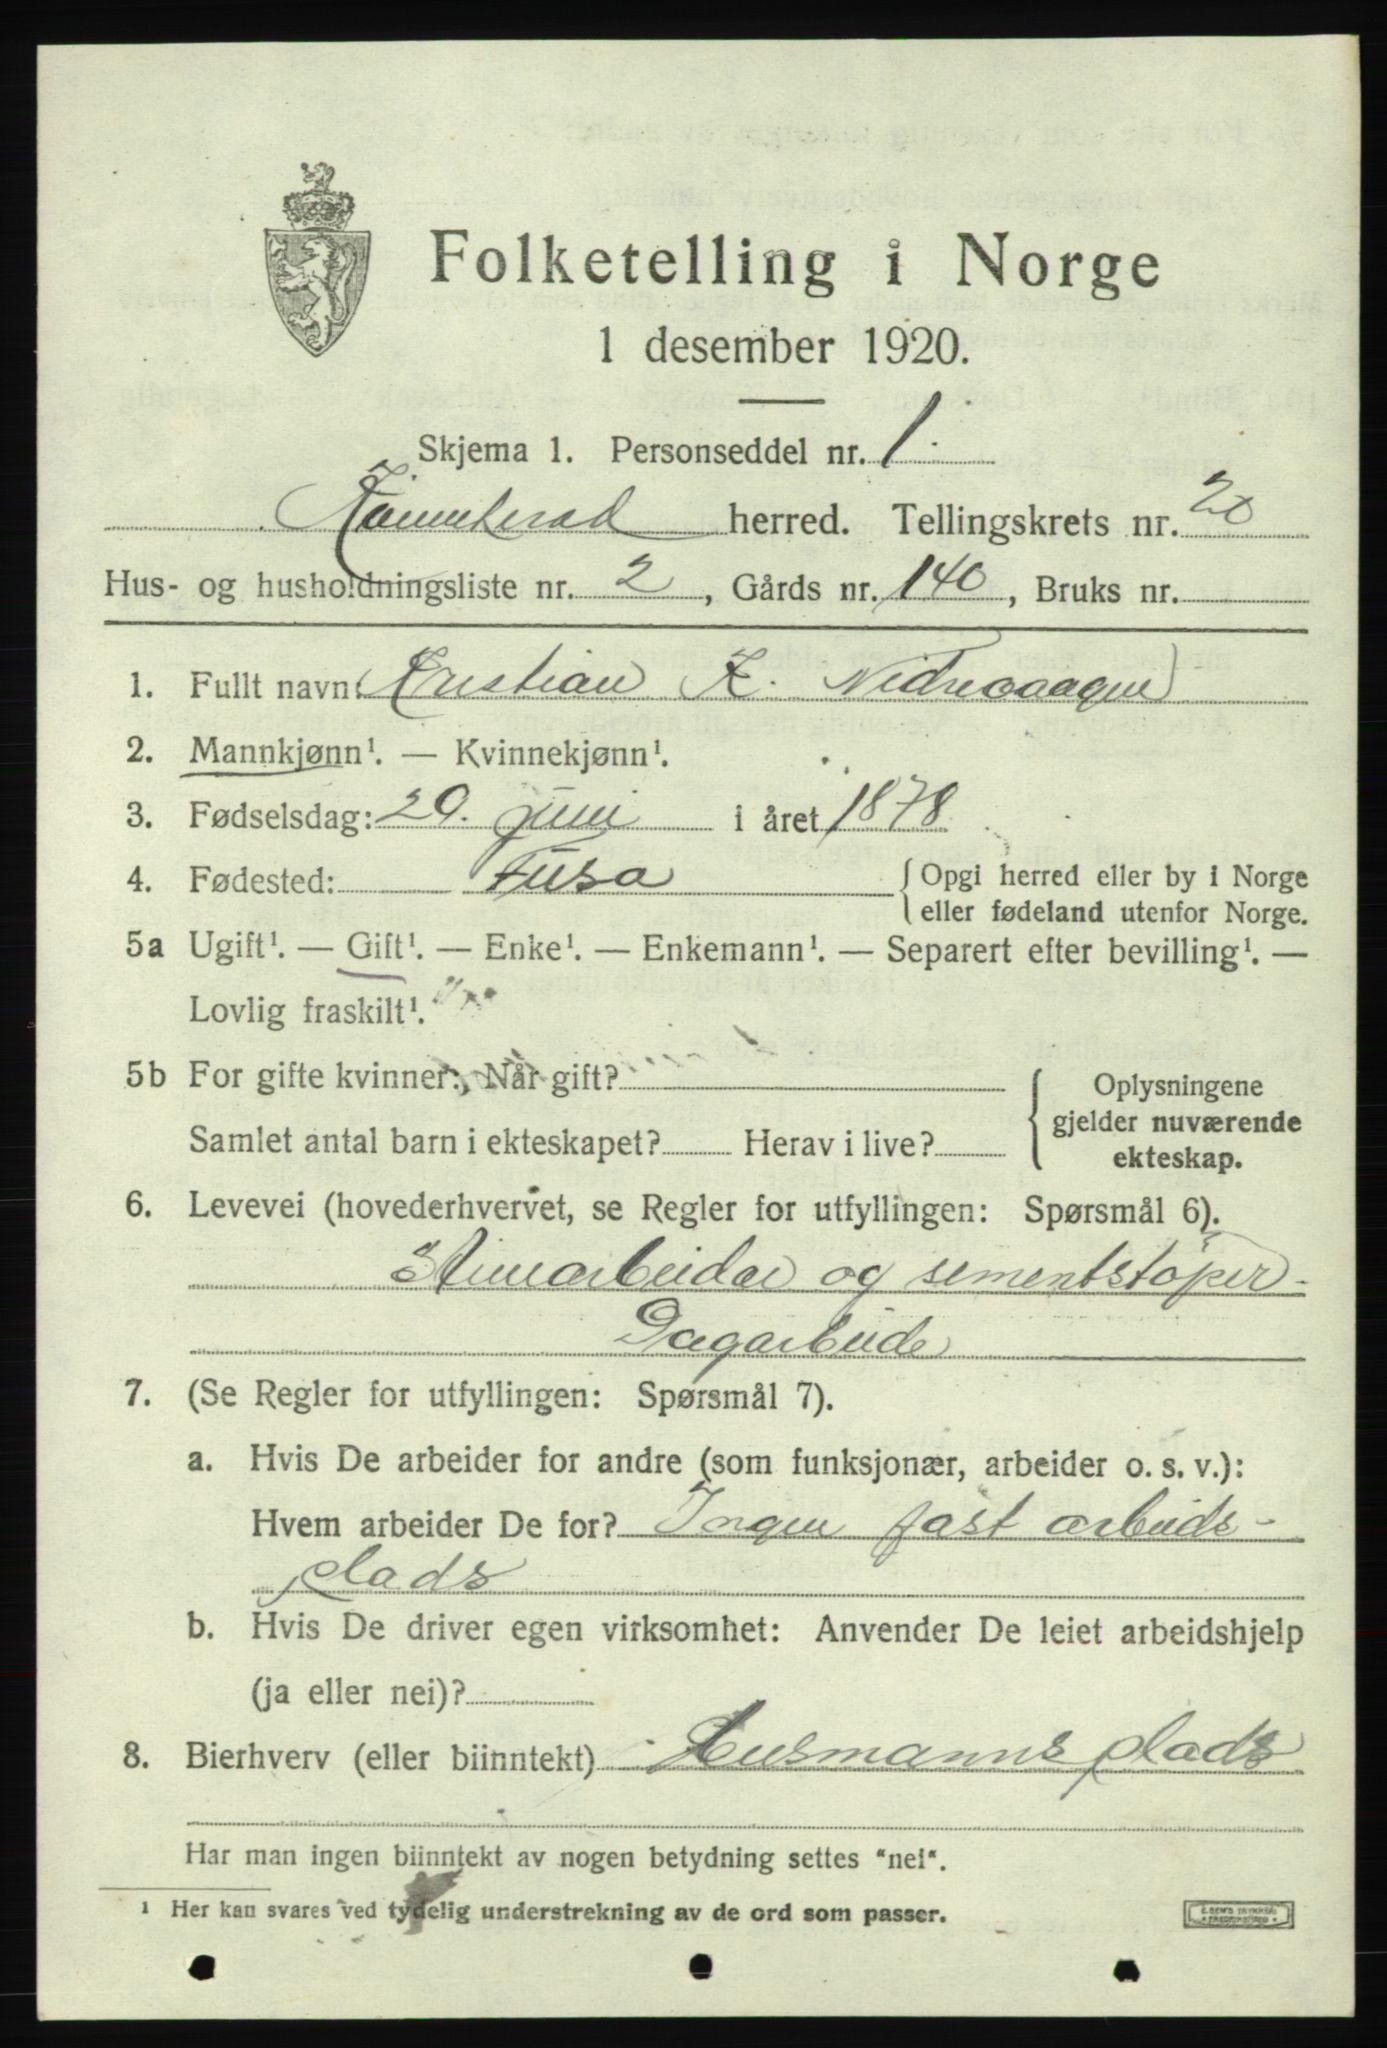 Folketelling i Norge
1 desember 1920.
Skjema 1. Personseddel nr. 1.
Kvinnherad herred. Tellingskrets nr. 20
Hus- og husholdningsliste nr. 2, Gårds nr. 140, Bruks nr.
1. Fullt navn: Kristian K. Nedrevaagen
2. Mannkjønn¹. — Kvinnekjønn¹.
3. Fødselsdag: 29. juni i året 1878
4. Fødested: Fusa { Opgi herred eller by i Norge
eller fødeland utenfor Norge.
5a Ugift¹. — Gift¹. — Enke¹. — Enkemann¹. — Separert efter bevilling¹. —
Lovlig fraskilt¹.
5b For gifte kvinner: Når gift? { Oplysningene
gjelder nuværende
Samlet antal barn i ekteskapet? Herav i live?
ekteskap.
6. Levevei (hovederhvervet, se Regler for utfyllingen: Spørsmål 6).
Stenarbeider og sementstøper -
Dagarbeide
7. (Se Regler for utfyllingen: Spørsmål 7).
a. Hvis De arbeider for andre (som funksjonær, arbeider o. s. v.):
Hvem arbeider De for? Ingen fast arbeids-
plads
b. Hvis De driver egen virksomhet: Anvender De leiet arbeidshjelp
(ja eller nei)?
8. Bierhverv (eller biinntekt) Husmannsplads
Har man ingen biinntekt av nogen betydning settes "nei".
¹ Her kan svares ved tydelig understrekning av de ord som passer.